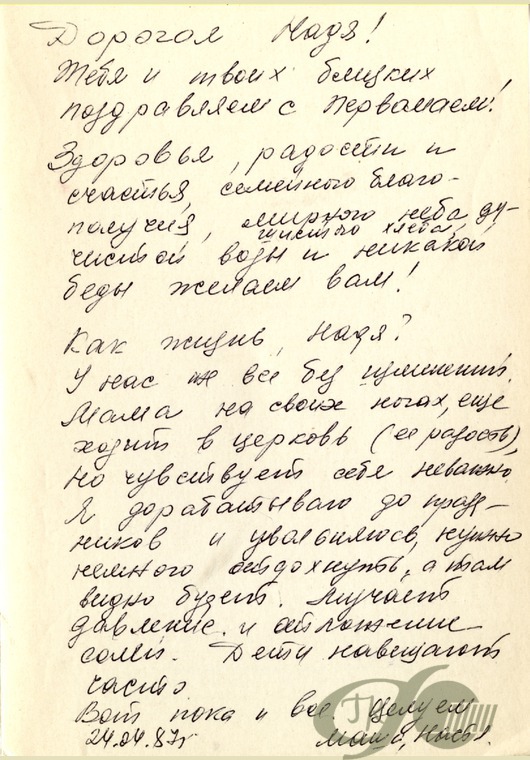 Дорогая Надя!
Тебя и твоих близких
поздравляем с Первомаем!
Здоровья, радости и
счастья, семейного благо-
получия, мирного неба, ду-
шистого хлеба,
чистой воды и никакой
беды желаем вам!
Как жизнь, Надя?
У нас все без изменений.
Мама на своих ногах, еще
ходит в церковь (ее радость),
но чувствует себя неважно.
Я дорабатываю до празд-
ников и увольняюсь, нужно
немного отдохнуть, а там
видно будет. Мучает
давление и отложение
солей. Дети навещают
часто
Вот пока и все. Целуем
24.04.87г Мама,